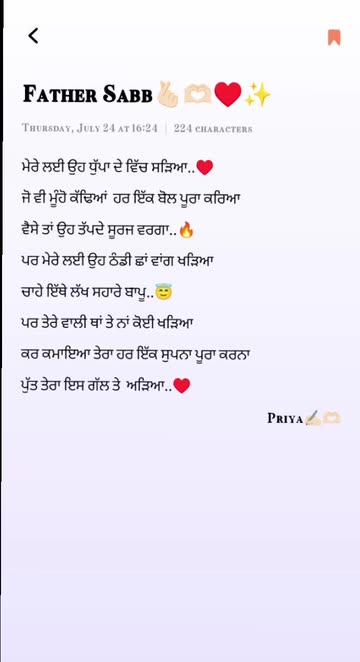 Father Sabb🫰🏻🫶🏻♥️✨
Thursday, July 24 at 16:24 | 224 characters
ਮੇਰੇ ਲਈ ਉਹ ਧੁੱਪਾ ਦੇ ਵਿੱਚ ਸੜਿਆ..♥️
ਜੋ ਵੀ ਮੂੰਹੋ ਕੱਢਿਆਂ ਹਰ ਇੱਕ ਬੋਲ ਪੂਰਾ ਕਰਿਆ
ਵੈਸੇ ਤਾਂ ਉਹ ਤੱਪਦੇ ਸੂਰਜ ਵਰਗਾ..🔥
ਪਰ ਮੇਰੇ ਲਈ ਉਹ ਠੰਡੀ ਛਾਂ ਵਾਂਗ ਖੜਿਆ
ਚਾਹੇ ਇੱਥੇ ਲੱਖ ਸਹਾਰੇ ਬਾਪੂ..😇
ਪਰ ਤੇਰੇ ਵਾਲੀ ਥਾਂ ਤੇ ਨਾਂ ਕੋਈ ਖੜਿਆ
ਕਰ ਕਮਾਇਆ ਤੇਰਾ ਹਰ ਇੱਕ ਸੁਪਨਾ ਪੂਰਾ ਕਰਨਾ
ਪੁੱਤ ਤੇਰਾ ਇਸ ਗੱਲ ਤੇ ਅੜਿਆ..♥️
Priya✍🏻🫶🏻